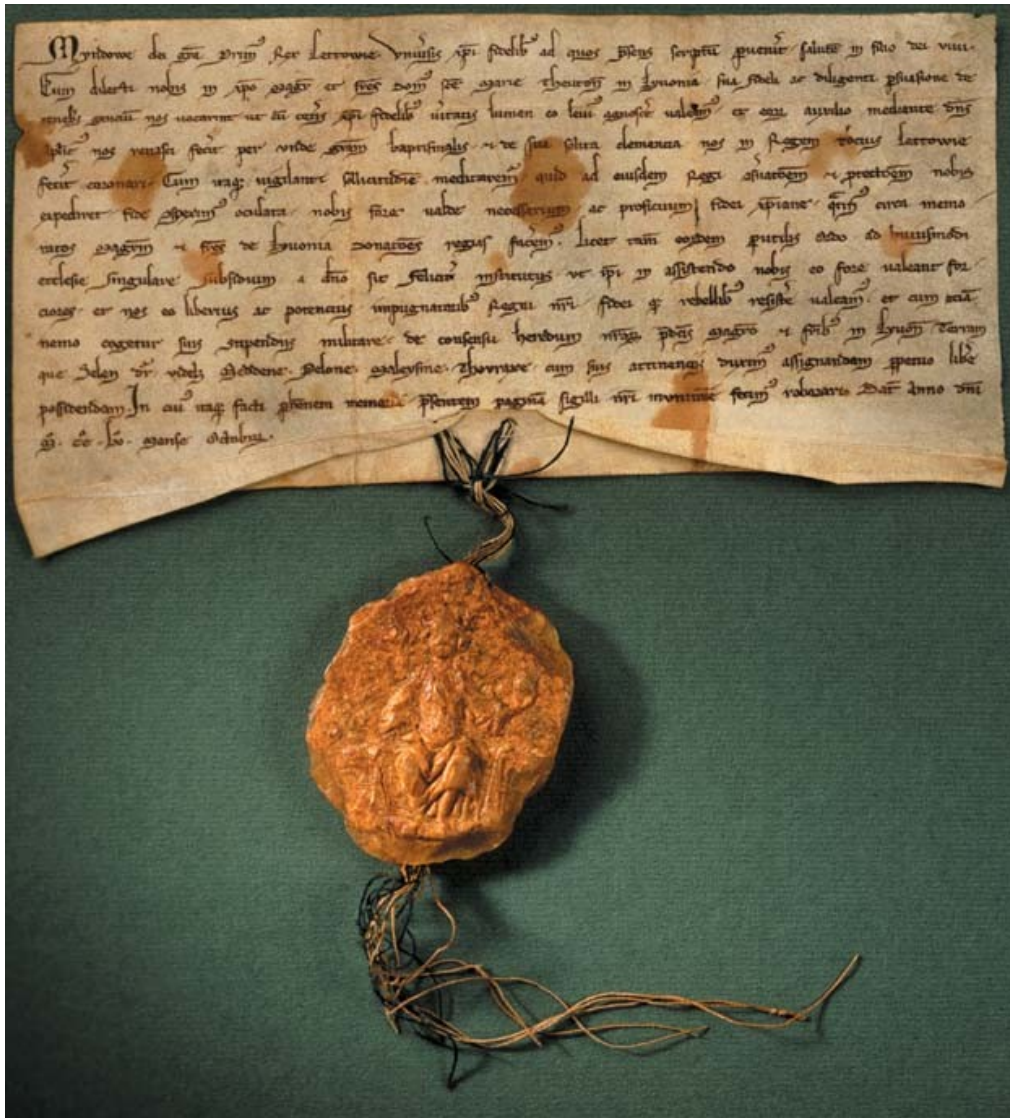 Myndowe dei gr̄a Primꝰ Rex Lettowie Vniu͛sis xp̄i fidelibꝰ ad quos p̄sens scriptū ꝑuen͛it salutē in filio dei viui.
Cum dilecti nobis in xp̄o magr̄ et fr̄es domꝰ sc̄e Marie theuton̄ in Lyuonia sua fideli ac diligenti ꝑsuasione de
tenebͥs nos uocarint ut cū cet͛is xp̄i fidelibꝰ u͛itatis lumen eo leuiꝰ agnosc͛e ualeamꝰ et eorū auxilio mediante dn̄s
nos renasci fecit per vnde gr̄am baptismalis ⁊ de sua solita clemencia nos in Regem tocius Lettowie
fecit coronari. Cum itaqꝫ vigilanti sollicitudīe meditaremꝰ quid ad eiusdem Regni ⁊ ꝓtectōem nobis
expediret fide oculata nobis fore valde necessarium ac proficuum fidei xp̄iane circa memo
ratos magrm̄ ⁊ fr̄es de Lyuonia donatōes regias facem꛳. Licet tam̄ eosdem ꝑutilis ordo ad huiusmodi
ecclesie singulare subsidium a dn̄o sit felicit͛ institutus vt ipi in assistendo nobis eo fore ualeant for
ciores. et nos eo liberius ac potencius impugnatoribꝰ Regni nr̄i fidei qꝫ rebellibꝰ resist͛e ualeamꝰ. et cum eciā
nemo cogetur suis stipendiis militare. de consensu heredum nr̄oꝝ p̄dc̄is magr̄o ⁊ fr̄ibꝰ in Lyuon̄ Terram
que Selen dr̄. videlꝫ Meddene. Pelone. Maleysine. Thovraxe. cum suis attinenciis duximꝰ assignandam ꝑpetuo lib͛e
possidendam. In cuiꝰ itaqꝫ facti ꝑhēnem memoriā p̄sentem paginā sigilli nr̄i munimīe fecimꝰ roborari. Dat̄ Anno dn̄i
M̊. cc̊. lv̊. mense Octobris.